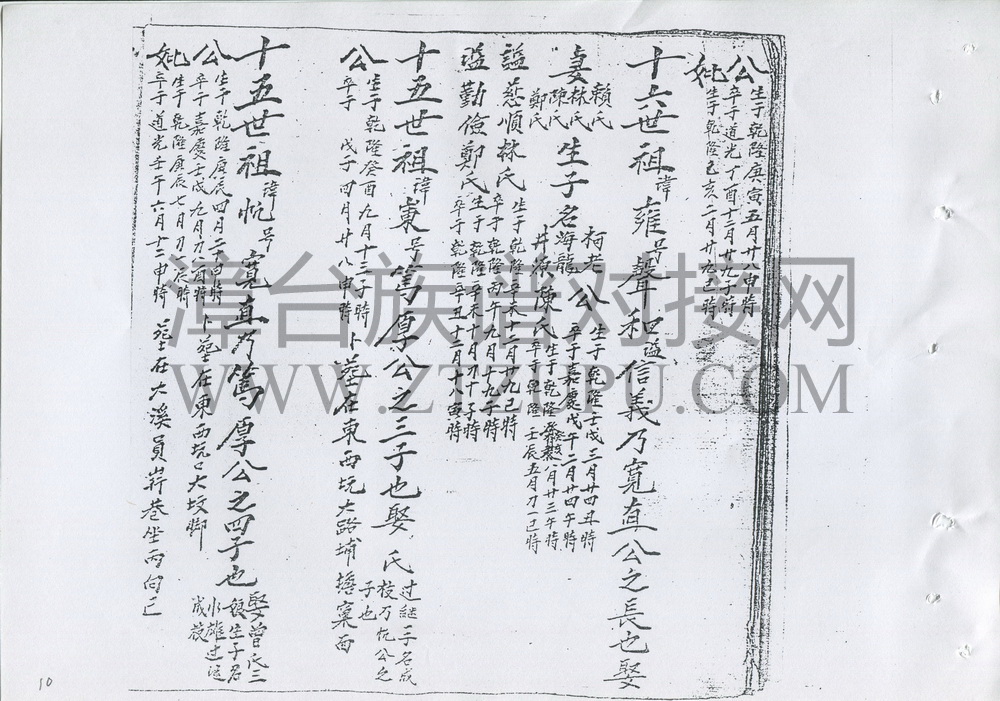 公 生于乾隆庚寅五月廿八申時
卒于道光丁酉十二月廿九子時
妣 生于乾隆己亥二月廿九巳時
十六世祖諱雍号聲和謚信義乃寬直公之長也娶
賴氏
林氏
陳氏
鄭氏
妻 生子名
柯老
海龍
井
公 生于乾隆壬戌三月廿四丑時
卒于嘉慶戊午二月廿四午時
陳氏 生于乾隆 八月廿三午時
卒于乾隆壬辰五月初一巳時
謚慈順林氏 生于乾隆辛未十二月廿九巳時
卒于乾隆丙午九月十九午時
謚勤儉鄭氏 生于乾隆辛未十月初十子時
卒于乾隆辛丑十二月十八寅時
十五世祖諱 号篤厚公之三子也娶 氏 过继一子名成
枝乃忱公之
子也
公 生于乾隆癸酉九月十三子時
卒于 戊子四月廿八申時
卜葬在東西坑大路埔 窠面
十五世祖諱忱号寬直乃篤厚公之四子也 娶曾氏三
娘生子名
水雄过运
成枝
公 生于乾隆庚辰四月二十申時
卒于嘉慶壬戌九月初八酉時
卜葬在東西坑口大坟脚
妣 生于乾隆庚辰七月初一辰時
卒于道光壬午六月十二申時
葬在大溪員 巷坐丙向
漳台族谱对接网
WWW.ZTZUPU.COM
10